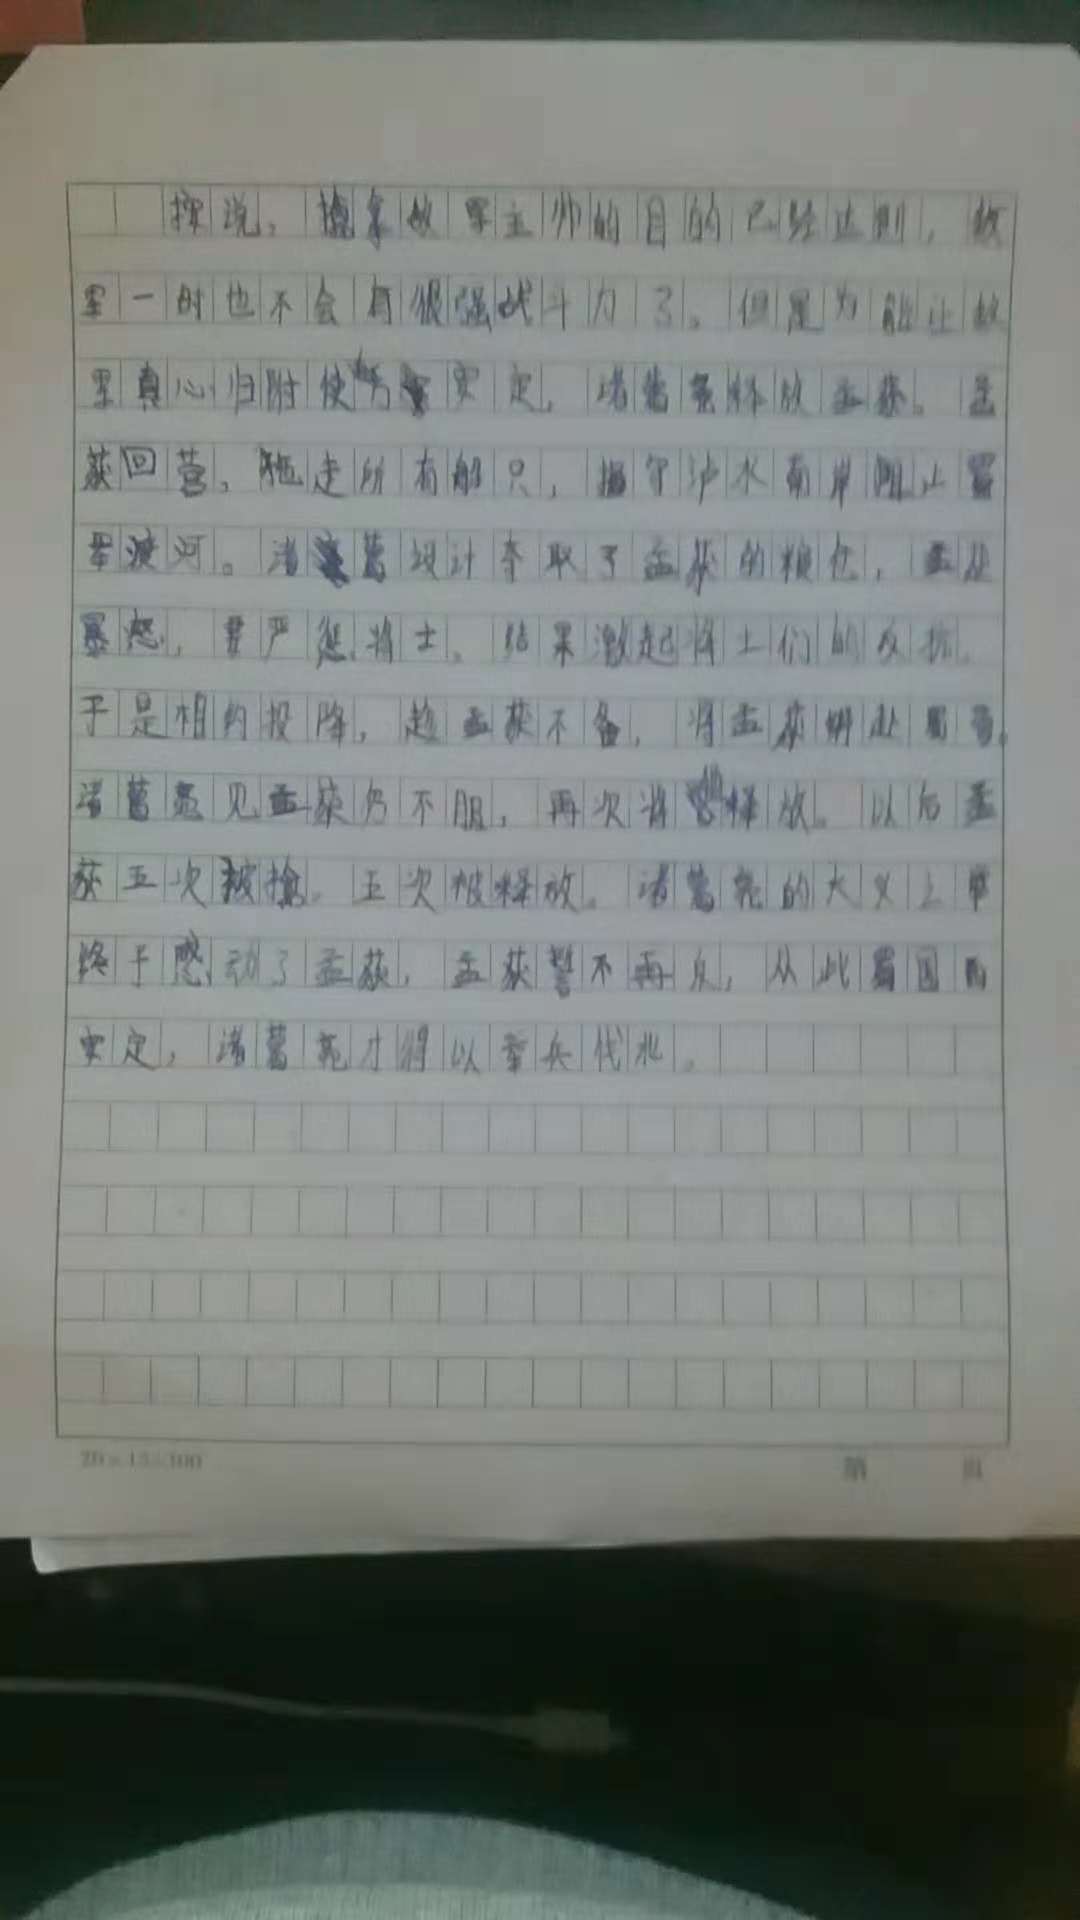 按说，擒拿敌军主帅的目的已经达到，敌
军一时也不会有很强战斗力了。但是为能让敌
军真心归附使南方安定，诸葛亮释放孟获。孟
获回营，拖走所有船只，据守泸水南岸阻止蜀
军渡河。诸葛设计夺取了孟获的粮仓，孟获
暴怒，要严惩将士。结果激起将士们的反抗，
于是相约投降，趁孟获不备，将孟获绑赴蜀营。
诸葛亮见孟获仍不服，再次将他释放。以后孟
获五次被擒，五次被释放。诸葛亮的大义之举
终于感动了孟获，孟获誓不再反，从此蜀国西
安定，诸葛亮才得以率兵伐北。
20×15=300
第 页